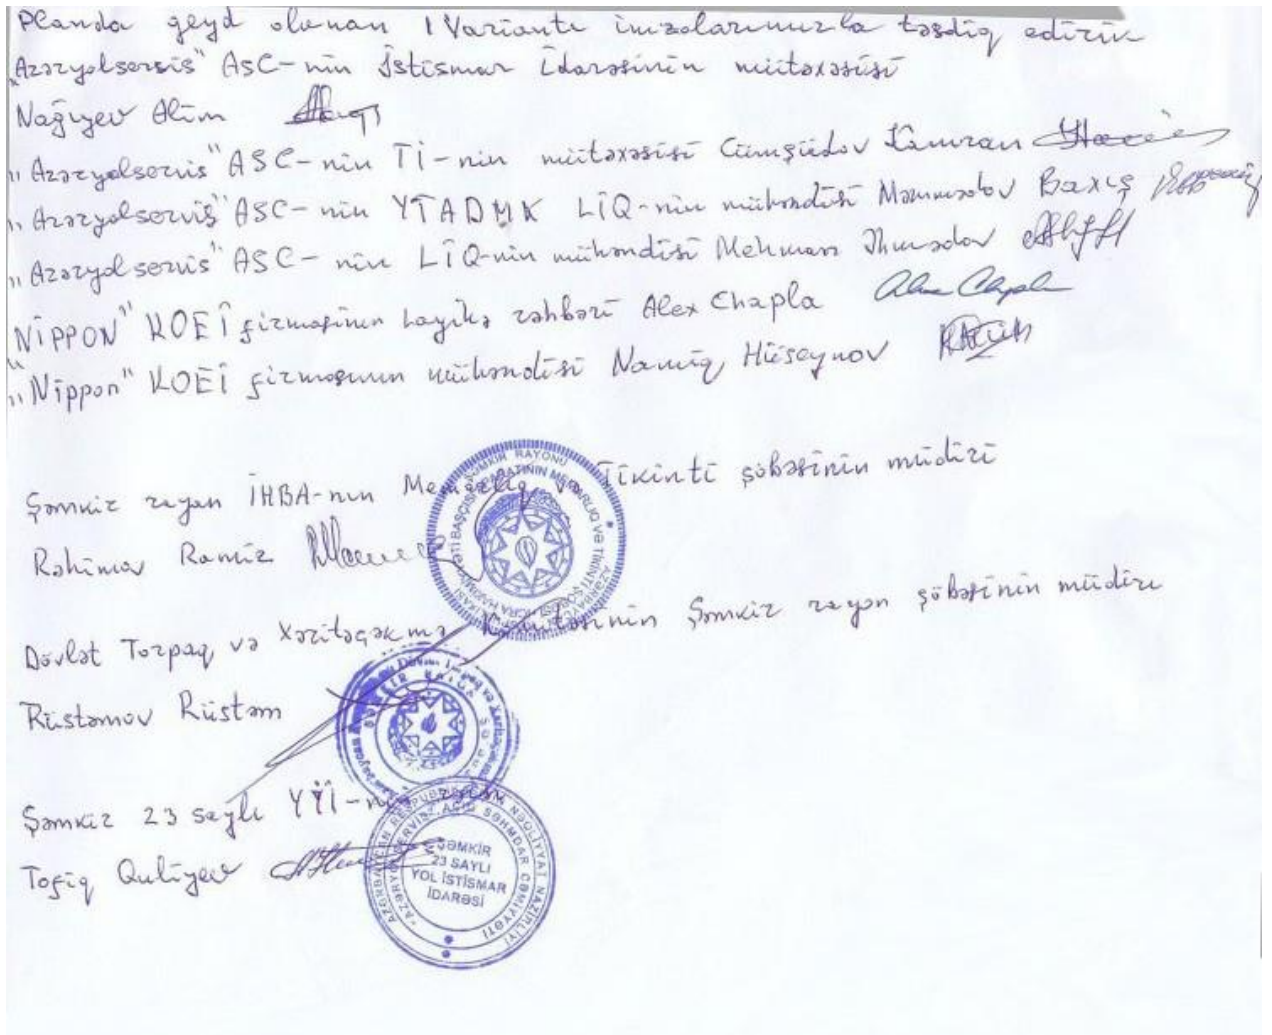 Planda qeyd olunan 1 Variantı imzalarımızla təsdiq edirik
"Azəryolservis" ASC-nin İstismar İdarəsinin mütəxəsisi
Nağıyev Alim
"Azəryolservis" ASC-nin Tİ-nin mütəxəsisi Cümşüdov Kamran
"Azəryolserviş" ASC-nin YTADMK LİQ-nin mühəndisi Məmmədov Baxış
"Azəryolservis" ASC-nin LİQ-nin mühəndisi Mehman Əhmədov
"NİPPON" KOEİ firmasının layihə rəhbəri Alex Chapla
"Nippon" KOEİ firmasının mühəndisi Namiq Hüseynov
Şəmkir rayon İHBA-nın Memarlıq və Tikinti şöbəsinin müdiri
Rəhimov Ramiz
Dövlət Torpaq və Xəritəçəkmə Komitəsinin Şəmkir rayon şöbəsinin müdiri
Rüstəmov Rüstəm
Şəmkir 23 saylı YİI-nin rəisi
Tofiq Quliyev
ŞƏMKİR
23 SAYLI
YOL İSTİSMAR
İDARƏSİ